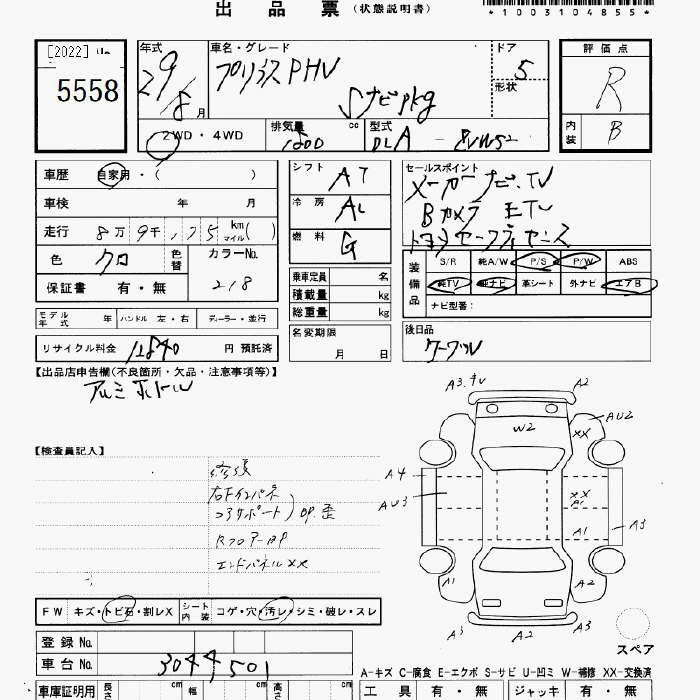 出 品 票 (状態説明書)
*1003104855*
[2022]
5558
年式
29/8月
2WD・4WD
車名・グレード
プリウスPHV
Sナビpkg
ドア
5
形状
排気量 1800 cc
型式 DLA
評価点
R
内装
B
車歴 自家用・( )
車検 年 月
走行 8万9千 km マイル( )
色 クロ 色替 カラーNo. 218
保証書 有・無
シフト AT
冷房
燃料 G
乗車定員 名
積載量 kg
総重量 kg
セールスポイント
メーカーナビ.TV
Bカメラ
装備品
S/R 純A/W P/S P/W ABS
純TV 純ナビ 革シート 外ナビ エアB
ナビ型番:
モデル年式 年 ハンドル 左・右 ディーラー・並行
リサイクル料金 12840 円 預託済
名変期限
月 日
後日品
【出品店申告欄(不良箇所・欠品・注意事項等)】
【検査員記入】
コアサポート
エンドパネルXX
A3.
A2
W2
AU2
XX
A4
AU3
XX
A1
A1
A3
A1
A2
A3
A2
A3
スペア
FW キズ・トビ石・割レX シート内装 コゲ・穴・汚レ・シミ・破レ・スレ
登録No.
車台No. 3044501
A-キズ C-腐食 E-エクボ S-サビ U-凹ミ W-補修 XX-交換済
車庫証明用 長さ cm 幅 cm 高さ cm
工具 有・無 ジャッキ 有・無